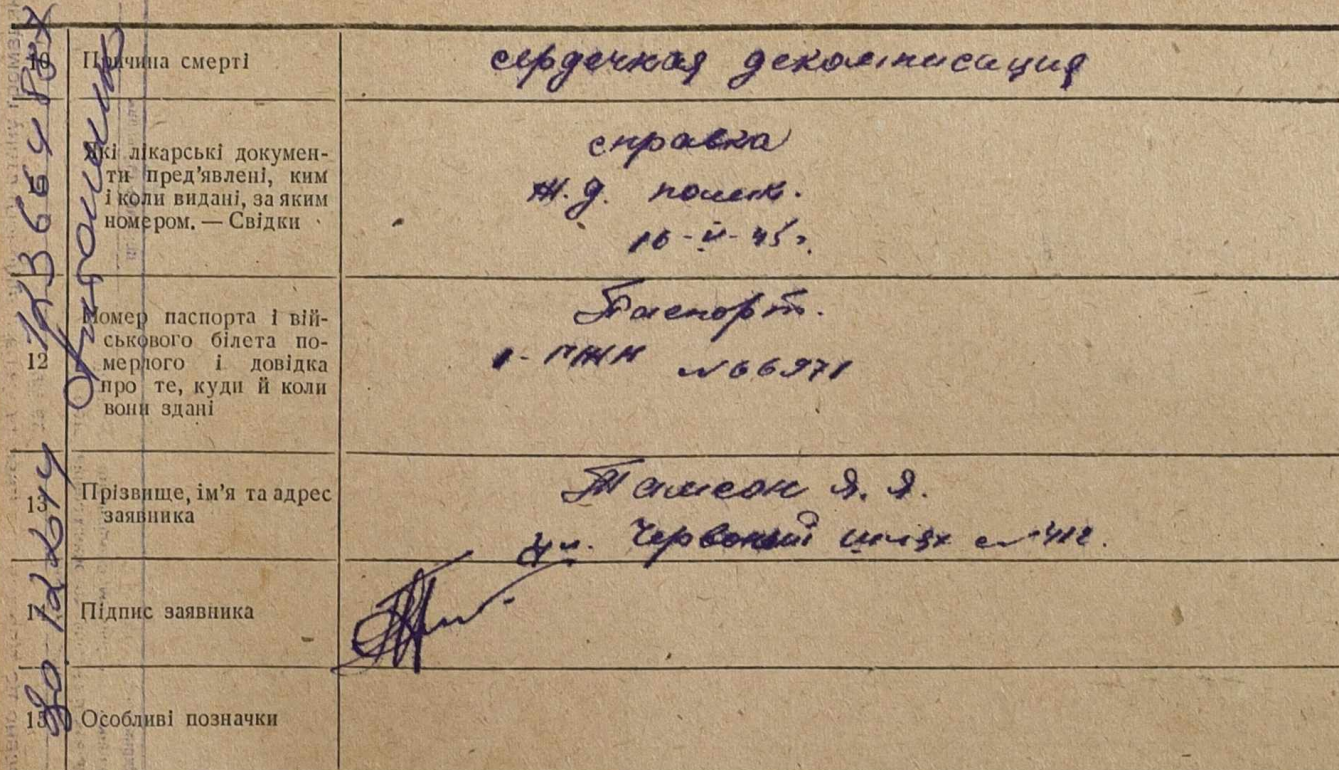 10 Причина смерті
сердечная декомписация
Які лікарські докумен-
ти пред'явлені, ким
і коли видані, за яким
номером. — Свідки
справка
ж.д. полик.
16-II-45г.
12
Номер паспорта і вій-
ськового білета по-
мерлого і довідка
про те, куди й коли
вони здані
Паспорт.
1-ПЖН №66971
13 Прізвище, ім'я та адрес
заявника
Тамсон Я. Я.
Ул. Червоний шлях №
14 Підпис заявника
15 Особливі позначки